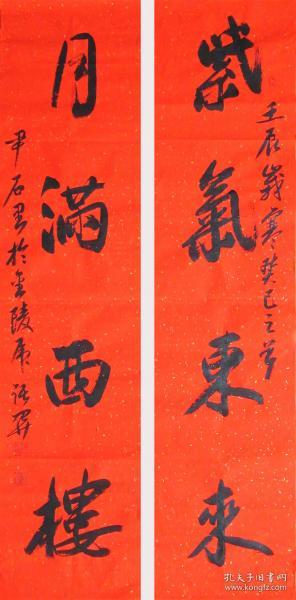 紫氣東來
壬辰歲寒癸巳之首
月滿西樓
尹石書於金陵
孔夫子旧书网
www.kongfz.com